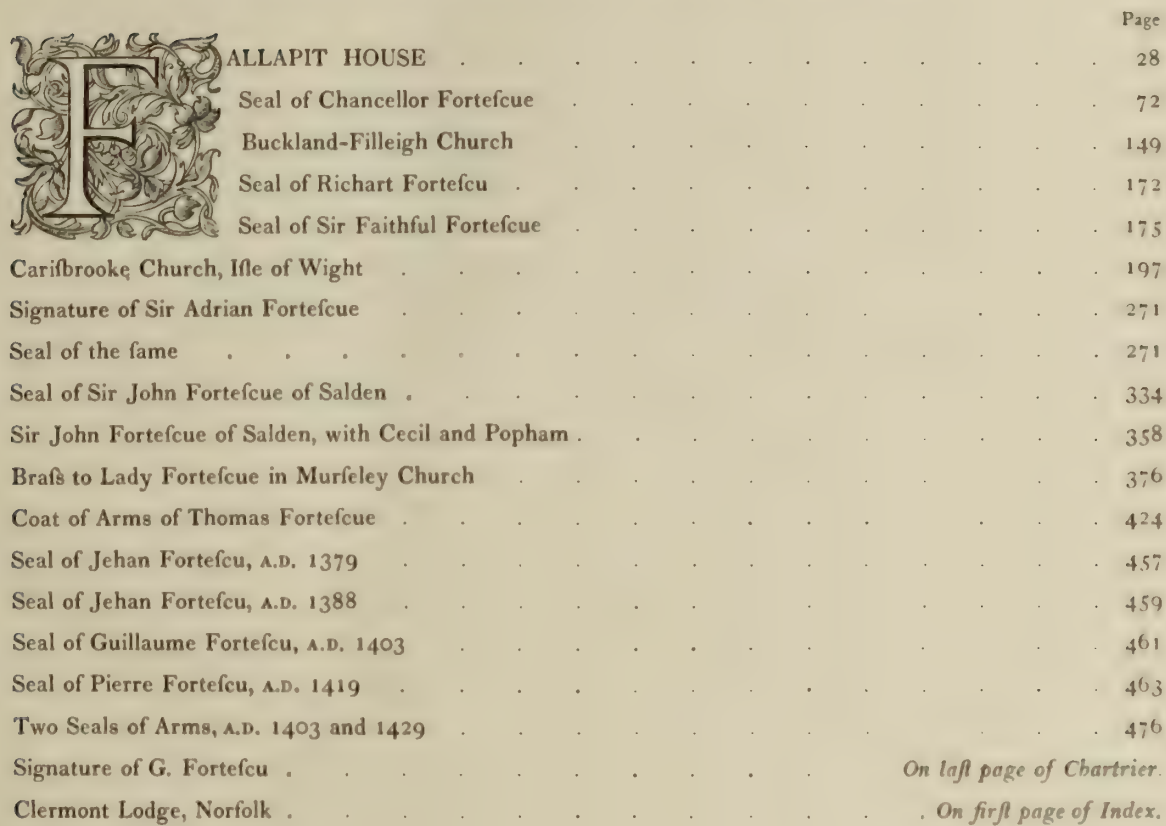 Page
FALLAPIT HOUSE . . . . . . . . . . . . 28
Seal of Chancellor Forteſcue . . . . . . . . . . 72
Buckland-Filleigh Church . . . . . . . . . . 149
Seal of Richart Forteſcu . . . . . . . . . . . 172
Seal of Sir Faithful Forteſcue . . . . . . . . . . 175
Cariſbrooke Church, Iſle of Wight . . . . . . . . . . . . . 197
Signature of Sir Adrian Forteſcue . . . . . . . . . . . . 271
Seal of the ſame . . . . . . . . . . . . . . . . 271
Seal of Sir John Forteſcue of Salden . . . . . . . . . . . . . 334
Sir John Forteſcue of Salden, with Cecil and Popham . . . . . . . . . . 358
Braſs to Lady Forteſcue in Murſeley Church . . . . . . . . . . . 376
Coat of Arms of Thomas Forteſcue . . . . . . . . . . . . . 424
Seal of Jehan Forteſcu, A.D. 1379 . . . . . . . . . . . . . 457
Seal of Jehan Forteſcu, A.D. 1388 . . . . . . . . . . . . . 459
Seal of Guillaume Forteſcu, A.D. 1403 . . . . . . . . . . . . 461
Seal of Pierre Forteſcu, A.D. 1419 . . . . . . . . . . . . . 463
Two Seals of Arms, A.D. 1403 and 1429 . . . . . . . . . . . . 476
Signature of G. Forteſcu . . . . . . . . . . On laſt page of Chartrier.
Clermont Lodge, Norfolk . . . . . . . . . . . On firſt page of Index.